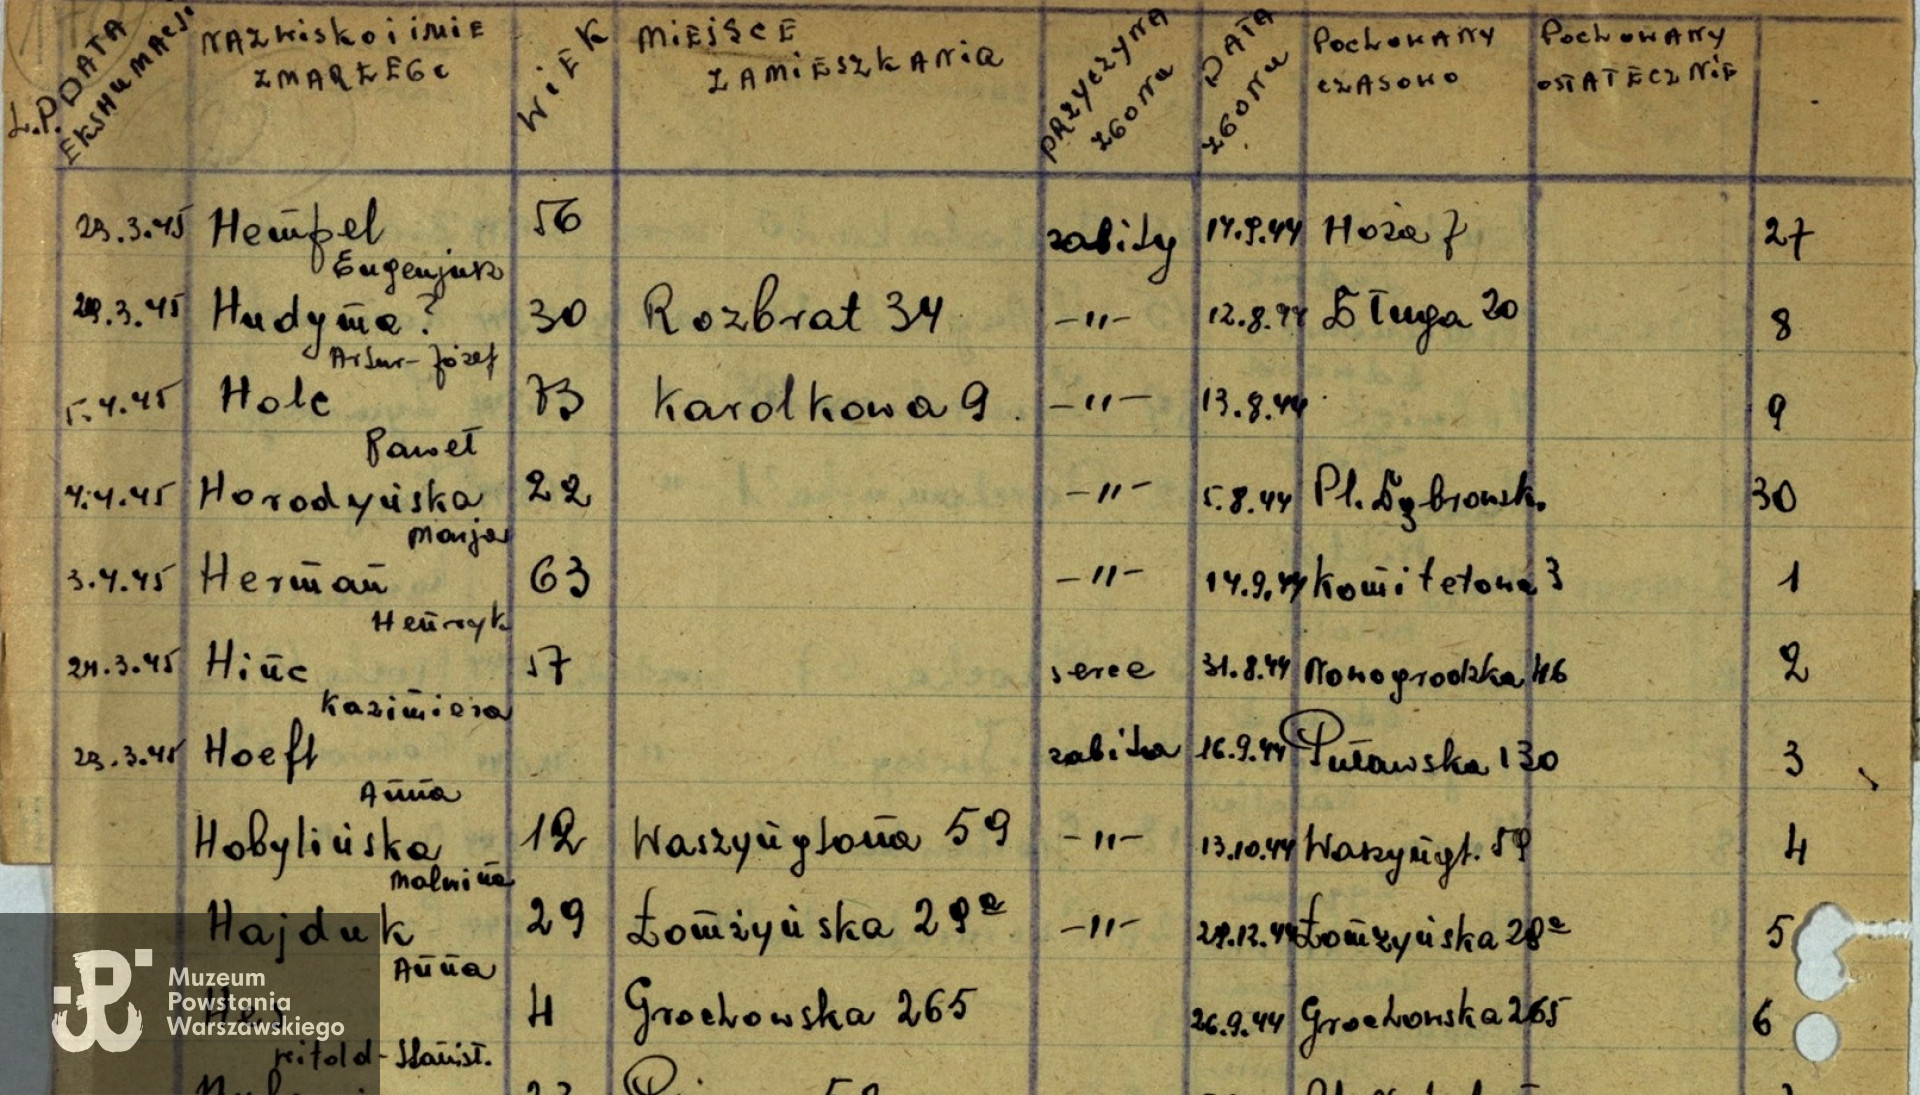 L.P. DATA EKSHUMACJI NAZWISKO i IMIE ZMARŁEGO WIEK MIEJSCE ZAMIESZKANIA PRZYCZYNA ZGONU DATA ZGONU POCHOWANY CZASOWO POCHOWANY OSTATECZNIE
23.3.45 Hempel 56 zabity 17.9.44 Hoża 7 27
Eugenjusz
29.3.45 Hudyma? 30 Rozbrat 34 -"- 12.8.44 Długa 20 8
Artur-Józef
5.4.45 Holc 73 Karolkowa 9 -"- 13.8.44 9
Paweł
4.4.45 Horodyńska 22 -"- 5.8.44 Pl. Dąbrowsk. 30
Marja
3.4.45 Herman 63 -"- 14.9.44 Komitetowa 3 1
Henryk
24.3.45 Hinc 57 serce 31.8.44 Nowogrodzka 46 2
Kazimiera
23.3.45 Hoeft zabita 16.9.44 Puławska 130 3
Anna
Hobylińska 12 Waszyngtona 59 -"- 13.10.44 Waszyngt. 59 4
Malwina
Hajduk 29 Łomżyńska 29a -"- 29.12.44 Łomżyńska 28a 5
Anna
Hes 4 Grochowska 265 26.9.44 Grochowska 265 6
Witold-Stanisł.
Muzeum
Powstania
Warszawskiego